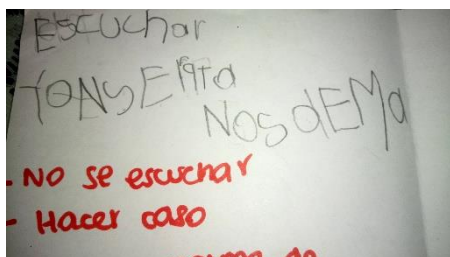 Escuchar
YONSEPITA
NosdEMa
- No se escuchar
- Hacer caso